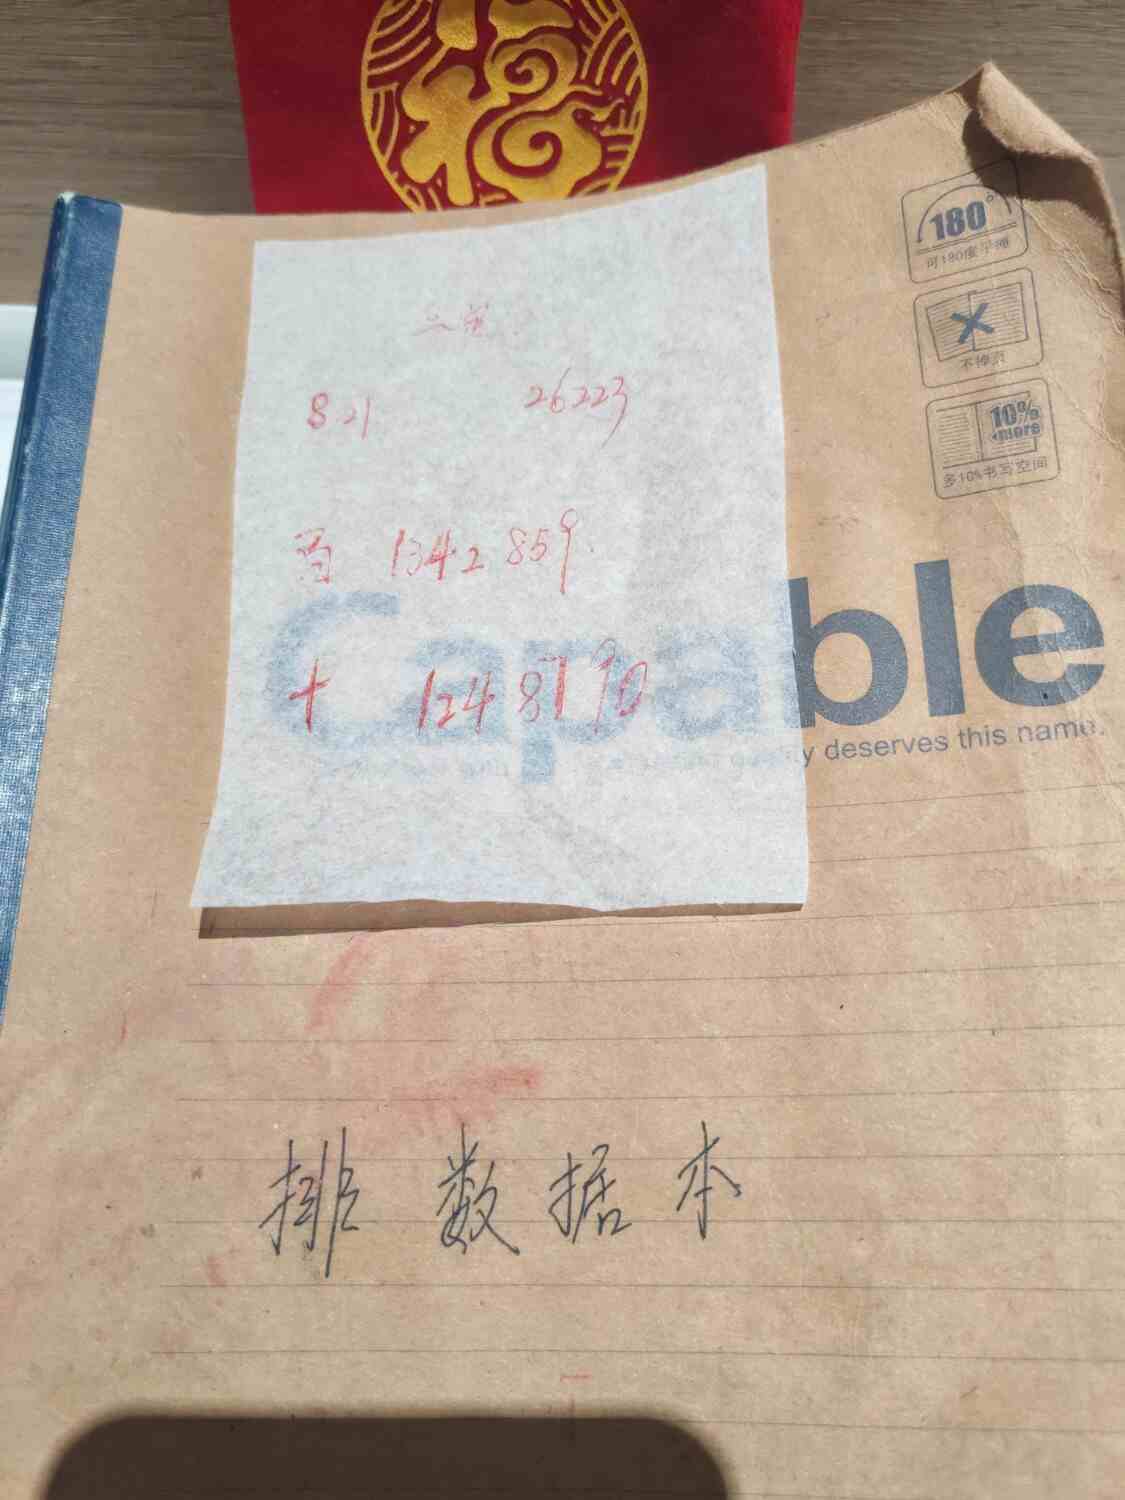 福
180°
可180度平摊
不掉页
10%
more
多10%书写空间
8.21 26223
1342859
十 1248790
Capable
y deserves this name.
排数据本